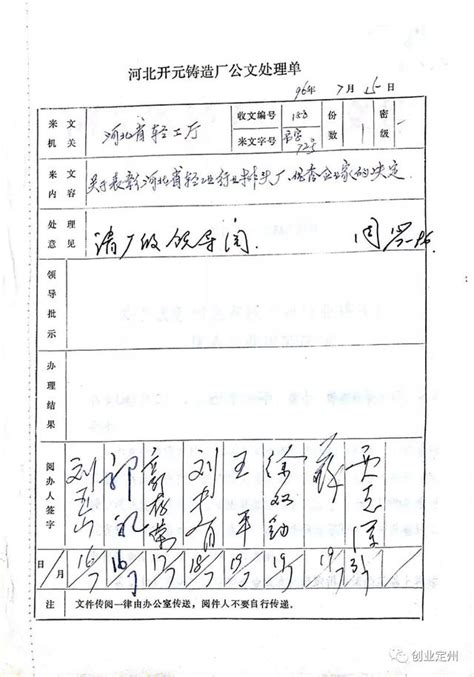 河北开元铸造厂公文处理单
96年 7月 15日
来文机关 河北省轻工厅 收文编号 188 份数 1 密级
来文字号
来文内容 关于表彰河北省轻工业行业排头厂、优秀企业家的决定
处理意见 请厂级领导阅.
领导批示
办理结果
阅办人签字 刘 郭 刘 王平 徐 薛 贾志
日/月 16/7 16/7 17/7 18/7 19/7 19/7 19/7 31/7
注 文件传阅一律由办公室传送，阅件人不要自行传递。
创业定州